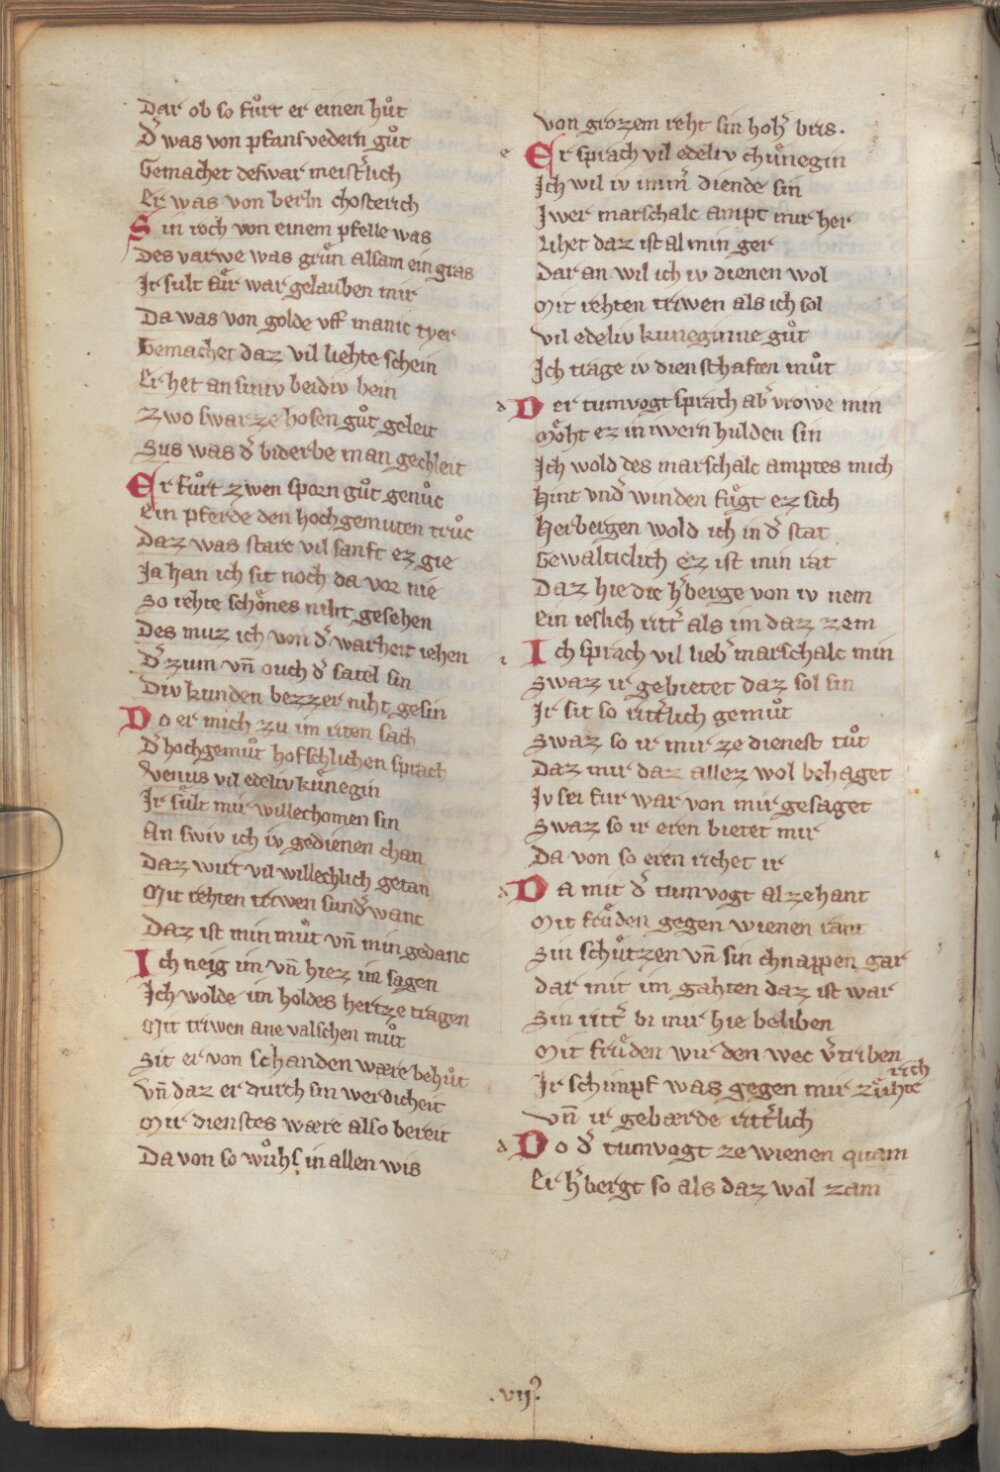 Dar ob so fuͦrt er einen huͦt
D͛ was von pfansvedern guͦt
Gemachet deswar meist͛lich
Er was von berln chosterich
Sin roch von einem pfelle was
Des varwe was gruͤn alsam ein gras
Ir sult fuͤr war gelauben mir
Da was von golde vff manic tyer
Gemachet daz vil liehte schein
Er het an siniv beidiv bein
Zwo swarze hosen guͦt geleit
Sus was d͛ biderbe man gechleit
Er fuͦrt zwen sporn guͦt genuͦc
Ein pferde den hochgemuten truͦc
Daz was starc vil sanft ez gie
Ja han ich sit noch da vor nie
So rehte schoͤnes niht gesehen
Des muz ich von d͛ warheit iehen
D͛ zum vn̄ ouch d͛ satel sin
Div kunden bezzer niht gesin
Do er mich zu im riten sach
D͛ hochgemuͦt hofschlichen sprach
Venus vil edeliv kuͤnegin
Ir suͤlt mir willechomen sin
An swiv ich iv gedienen chan
Daz wirt vil willechlich getan
Mit rehten triwen sund͛ wanc
Daz ist min muͦt vn̄ min gedanc
Ich neig im vn̄ hiez im sagen
Ich wolde im holdes hertze tragen
Mit triwen ane valschen muͦt
Sit er von schanden wære behuͦt
Vn̄ daz er durch sin werdicheit
Mir dienstes wære also bereit
Da von so wuͦhs in allen wis
Von grozem reht sin hoh͛ bris.
e Er sprach vil edeliv chuͤnegin
Ich wil iv imm͛ diende sin
Iwer marschalc ampt mir her
Lihet daz ist al min ger
Dar an wil ich iv dienen wol
Mit rehten triwen als ich sol
Vil edeliv kuneginne guͦt
Ich trage iv dienschaften muͦt
d Der tumvogt sprach ab͛ vrowe min
Moͤht ez in iwern hulden sin
Ich wold des marschalc amptes mich
Hint vnd͛ winden fuͤgt ez sich
Herbergen wold ich in d͛ stat
Gewalticlich ez ist min rat
Daz hie die h͛berge von iv nem
Ein ieslich ritt͛ als im daz zem
i Ich sprach vil lieb͛ marschalc min
Swaz ir gebietet daz sol sin
Ir sit so ritt͛lich gemuͦt
Swaz so ir mir ze dienest tuͦt
Daz mir daz allez wol behaget
Iv sei fur war von mir gesaget
Swaz so ir eren bietet mir
Da von so eren richet ir
d Da mit d͛ tumvogt alzehant
Mit fruͤden gegen wienen rant
Sin schuͤtzen vn̄ sin chnappen gar
Dar mit im gahten daz ist war
Sin ritt͛ bi mir hie beliben
Mit fruͤden wir den wec v͛triben
Ir schimpf was gegen mir zuͤhte rich
Vn̄ ir gebærde ritt͛lich
d Do d͛ tumvogt ze wienen quam
Er h͛bergt so als daz wol zam
.vij.